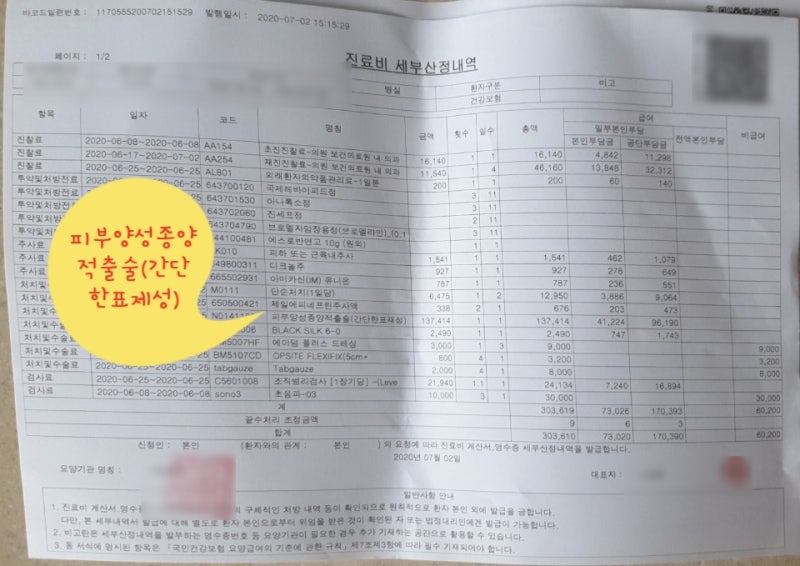 바코드일련번호 : 1170555200702151529 발행일시 : 2020-07-02 15:15:29
페이지 : 1/2
진료비 세부산정내역
병실 환자구분 비고
건강보험
항목 일자 코드 명칭 금액 횟수 일수 총액 급여 비급여
일부본인부담 전액본인부담
본인부담금 공단부담금
진찰료 2020-06-08~2020-06-08 AA154 초진진찰료-의원 보건의료원 내 의과 16,140 1 1 16,140 4,842 11,298
진찰료 2020-06-17~2020-07-02 AA254 재진진찰료-의원 보건의료원 내 의과 11,540 1 4 46,160 13,848 32,312
투약및처방전료 2020-06-25~2020-06-25 AL801 외래환자의약품관리료-1일분 200 1 1 200 60 140
투약및처방전료 643700120 국제레바미피드정 3 11
투약및처방전료 643701530 아나톡소정 3 11
투약및처방전료 643702060 진세프정 2 11
투약및처방전료 643704790 브로멜자임장용정(브로멜라인)_(0.1 3 11
주사료 44100481 에스로반연고 10g (원외) 1 1
주사료 K010 피하 또는 근육내주사 1,541 1 1 1,541 462 1,079
주사료 49800311 디크놀주 927 1 1 927 278 649
665502931 아미카신(IM) 유니온 787 1 1 787 236 551
M0111 단순처치(1일당) 6,475 1 2 12,950 3,886 9,064
650500421 제일에피네프린주사액 338 2 1 676 203 473
N0141 피부양성종양적출술(간단한표재성) 137,414 1 1 137,414 41,224 96,190
006 BLACK SILK 6-0 2,490 1 1 2,490 747 1,743
처치및수술료 BM5007HF 에이덤 플러스 드레싱 3,000 1 3 9,000 9,000
처치및수술료 BM5107CD OPSITE FLEXIFIX(5cm* 800 4 1 3,200 3,200
처치및수술료 2020-06-25 tabgauze Tabgauze 2,000 4 1 8,000 8,000
검사료 2020-06-25~2020-06-25 C5601008 조직병리검사 [1장기당] -(Leve 21,940 1.1 1 24,134 7,240 16,894
검사료 2020-06-08~2020-06-08 sono3 초음파-03 10,000 3 1 30,000 30,000
계 303,619 73,026 170,393 60,200
끝수처리 조정금액 9 6 3
합계 303,610 73,020 170,390 60,200
피부양성종양
적출술(간단
한표제성)
신청인 : 본인 (환자와의 관계 : 본인 ) 의 요청에 따라 진료비 계산서,영수증 세부산정내역을 발급합니다.
2020년 07월 02일
요양기관 명칭 : 대표자 :
일반사항 안내
1. 진료비 계산서,영수증 의 구체적인 처방 내역 등이 확인되므로 원칙적으로 환자 본인 외에 발급을 금합니다.
다만, 본 세부내역서 발급에 대해 별도로 환자 본인으로부터 위임을 받은 것이 확인된 자 또는 법정대리인에겐 발급이 가능합니다.
2. 비고란은 세부산정내역을 발부하는 영수증번호 등 요양기관이 필요한 경우 추가 기재하는 공간으로 활용할 수 있습니다.
3. 동 서식에 명시된 항목은 「국민건강보험 요양급여의 기준에 관한 규칙」 제7조제3항에 따라 필수 기재되어야 합니다.